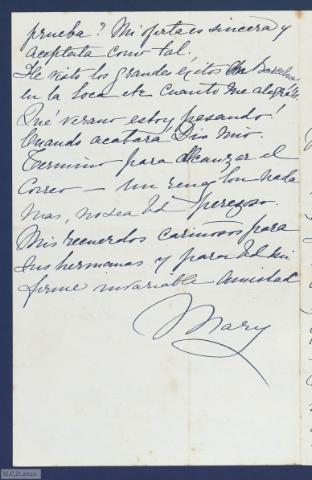 prueba? Mi oferta es sincera y
acéptata como tal.
He visto los grandes éxitos de Barcelona
en la Loca etc cuanto me alegro.
Que verano estoy pasando!
Cuando acabará Dios mio.
Termino para alcanzar el
correo — un renglon nada
mas, no sea Vd perezoso.
Mis recuerdos cariñosos para
sus hermanas y para Vd mi
firme invariable amistad
Mary